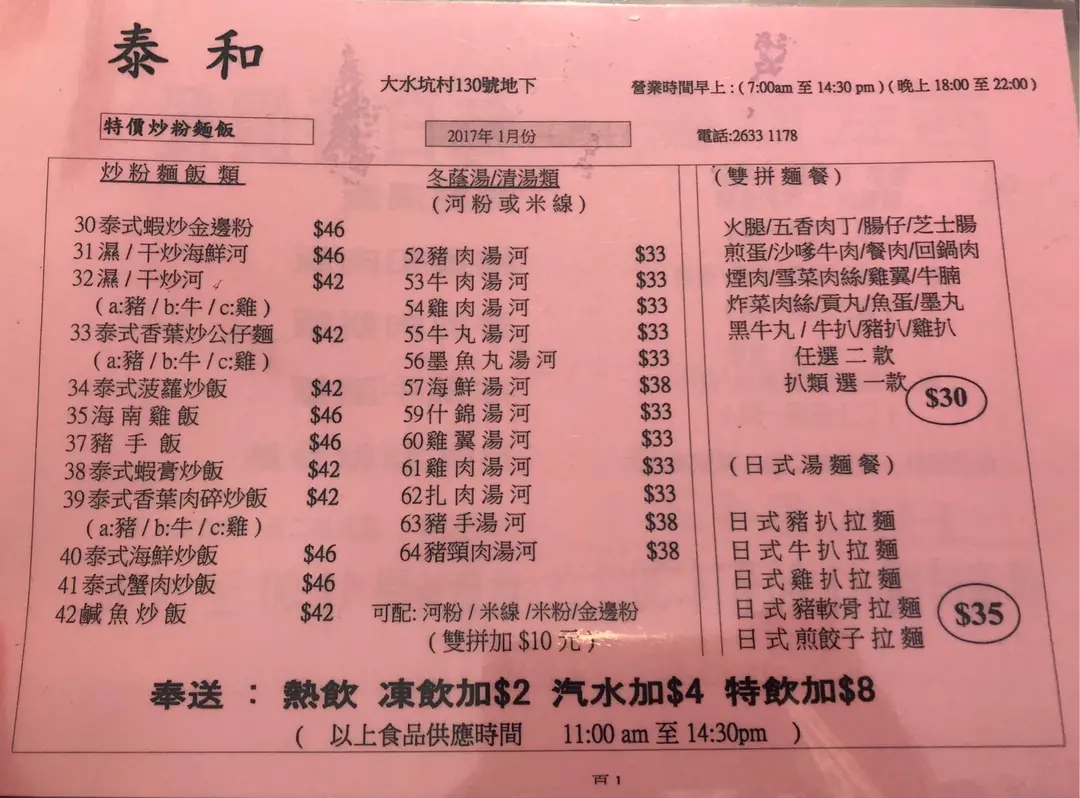 泰和
大水坑村130號地下
營業時間早上:(7:00am 至 14:30 pm)(晚上 18:00 至 22:00)
特價炒粉麵飯
2017年 1月份
電話:2633 1178
炒粉麵飯類
30泰式蝦炒金邊粉 $46
31濕/干炒海鮮河 $46
32濕/干炒河 $42
(a:豬/b:牛/c:雞)
33泰式香葉炒公仔麵 $42
(a:豬/b:牛/c:雞)
34泰式菠蘿炒飯 $42
35海南雞飯 $46
37豬手飯 $46
38泰式蝦膏炒飯 $42
39泰式香葉肉碎炒飯 $42
(a:豬/b:牛/c:雞)
40泰式海鮮炒飯 $46
41泰式蟹肉炒飯 $46
42鹹魚炒飯 $42
冬蔭湯/清湯類
(河粉或米線)
52豬肉湯河 $33
53牛肉湯河 $33
54雞肉湯河 $33
55牛丸湯河 $33
56墨魚丸湯河 $33
57海鮮湯河 $38
59什錦湯河 $33
60雞翼湯河 $33
61雞肉湯河 $33
62扎肉湯河 $33
63豬手湯河 $38
64豬頸肉湯河 $38
可配: 河粉/米線/米粉/金邊粉
(雙拼加 $10 元)
(雙拼麵餐)
火腿/五香肉丁/腸仔/芝士腸
煎蛋/沙嗲牛肉/餐肉/回鍋肉
煙肉/雪菜肉絲/雞翼/牛腩
炸菜肉絲/貢丸/魚蛋/墨丸
黑牛丸/牛扒/豬扒/雞扒
任選二款
扒類選一款
$30
(日式湯麵餐)
日式豬扒拉麵
日式牛扒拉麵
日式雞扒拉麵
日式豬軟骨拉麵
日式煎餃子拉麵
$35
奉送 : 熱飲 凍飲加$2 汽水加$4 特飲加$8
( 以上食品供應時間 11:00 am 至 14:30pm )
頁 1